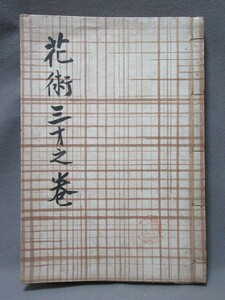 花術三才之巻